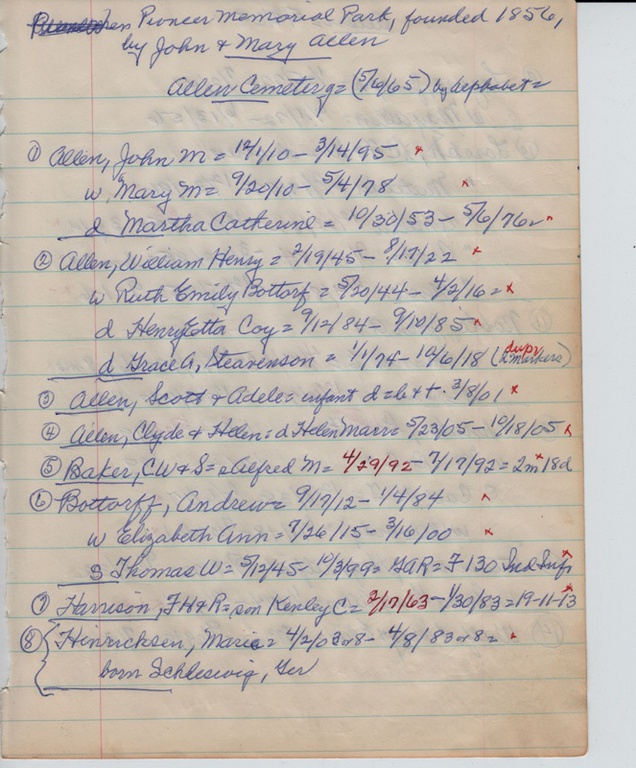 Pioneer Memorial Park, founded 1856,
by John & Mary Allen
Allen Cemetery = (5/6/65) by alphabet =
① Allen, John M = 12/1/10 - 3/14/95 x
w Mary M = 9/20/10 - 5/4/78 x
d Martha Catherine = 10/30/53 - 5/6/76 x
② Allen, William Henry = 2/19/45 - 8/17/22 x
w Ruth Emily Bottorf = 5/20/44 - 4/2/16 = x
d Henryetta Coy = 9/12/84 - 9/10/85 x
d Grace A. Stearenson = 1/1/74 - 10/6/18 (dupr 2 markers)
③ Allen, Scott & Adele = infant d = b & t. 3/8/01 x
④ Allen, Clyde & Helen = d Helen Marr = 5/23/05 - 10/18/05 x
⑤ Baker, CW & S = s Alfred M = 4/29/92 - 7/17/92 = 2m 18d x
⑥ Bottorff, Andrew = 9/17/12 - 1/4/84 x
w Elizabeth Ann = 7/26/15 - 3/16/00 x
s Thomas W = 5/12/45 - 10/3/99 = GAR = F 130 Ind Inf x
⑦ Harrison, FH & R = son Kenley C = 2/17/63 - 1/30/83 = 19-11-13 x
⑧ Hinrichsen, Marie = 4/2/03 or 8 - 4/8/83 or 8 = x
born Schleswig, Ger